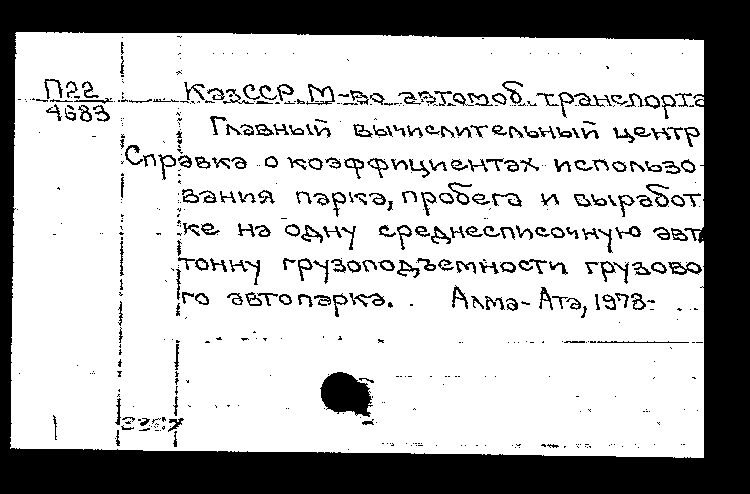 П22 КазССР. М-во автомоб. транспорта
4683 Главный вычислительный центр
Справка о коэффициентах использо-
вания парка, пробега и выработ-
ке на одну среднесписочную авт
тонну грузоподъемности грузово
го автопарка. . Алма-Ата, 1978-